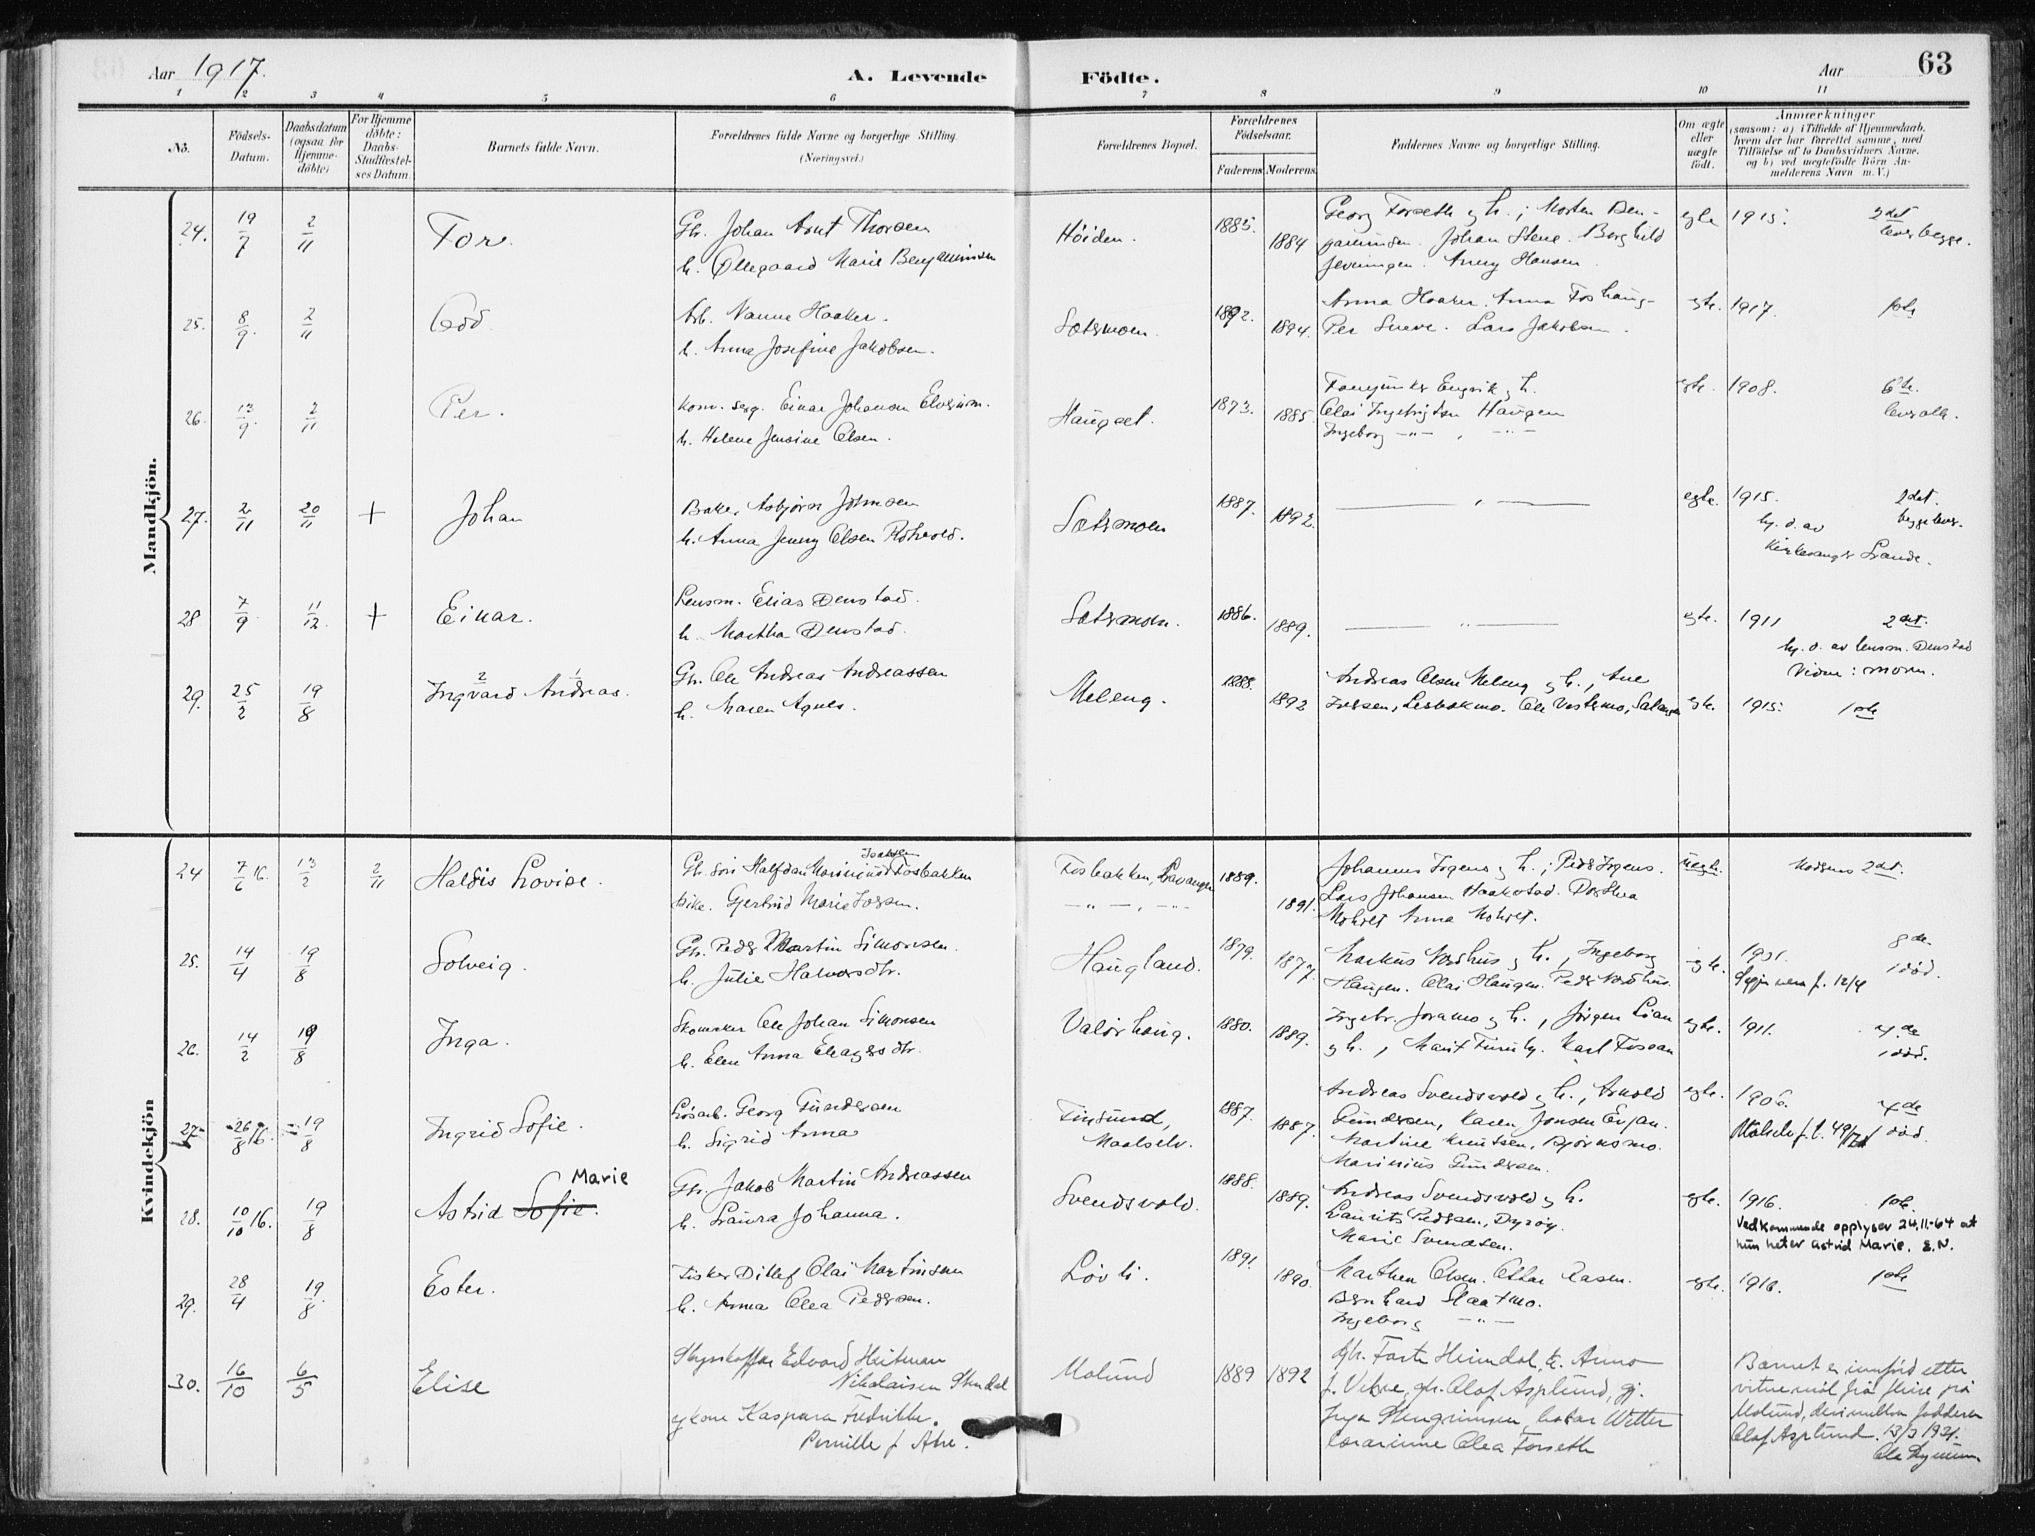 Aar 1917. A. Levende Födte. Aar 63
1 2 3 4 5 6 7 8 9 10 11
No. Födsels-Datum. Daabsdatum (ogsaa for Hjemme-döbte) For Hjemme döbte: Daabs-Stadfæstel-ses Datum. Barnets fulde Navn. Forældrenes fulde Navne og borgerlige Stilling. (Næringsvei.) Forældrenes Bopæl. Forældrenes Födselsaar. Faderens Moderens Faddernes Navne og borgerlige Stilling. Om ægte eller uægte födt. Anmærkninger (saasom: a) i Tilfælde af Hjemmedaab, hvem der har forrettet samme, med Tilföielse af to Daabsvidners Navne, og b) ved uegtefödte Börn An-melderens Navn m.V.)
Mandkjön.
24. 19/7 2/11 Tor. Gbr. Johan Arnt Thorsen Høiden. 1885. 1884 Georg Forseth og h.; Morten Ben- egte 1915. 2det
h. Ollegaard Marie Benjaminsen jaminsen. Johan Stene. Borghild lever begge.
Jevningen. Anny Hansen
25. 8/9 2/11 Odd. Arb. Nanne Haaker. Sætermoen. 1892. 1894. Anna Haaker. Anna Foshaug. egte. 1917. 1ste
h. Anna Josefine Jakobsen. Per Sneve. Lars Jakobsen.
26. 13/9 2/11 Per. Korn. serg. Einar Johansen Elverum. Hauget. 1873. 1885. h. egte. 1908. 6te.
h. Helene Jensine Olsen. Olai Ingebrigtsen Haugen lever alle.
Ingeborg -"- , -"-
27. 2/11 20/11 + Johan Baker Asbjørn Johnsen Sætermoen 1887. 1892. egte. 1915. 2det.
h. Anna Jenny Olsen Rohvold. hj. d. av begge lever.
kirkesanger Strande.
28 7/9 11/12. + Einar. Lensm. Elias Denstad. Sætermoen. 1886. 1889. egte. 1911 2det.
h. Martha Denstad. hj. d. av lensm. Denstad
Vidne: moren.
29. 25/2 19/8 Ingvard 2 Andreas. 1 Gbr. Ole Andreas Andreassen Meleng. 1888. 1892 Andreas Olsen Meleng og h., Ane egte. 1915. 1ste
h. Maren Agnes. Iversen, Lersbakmo. Ole Vestermo, Salangen
Kvindekjön
24 7/6 16. 13/2 2/11 Haldis Lovise. Gbr. søn Halfdan Marinius Isaksen Fosbakken Fosbakken, Lavangen 1889. 1891. Johannes h.; Peder uegte. Modrens 2det.
pike. Gjertrud Marie Iversen. -"- , -"- Lars Johansen Haakstad. Dorthea
Moholt Anna Moholt.
25. 14/4 19/8 Solveig. Gbr. Peder Martin Simonsen. Haugland. 1879. 1877. Markus Nordhus og h., Ingeborg egte. 1901. 8de.
h. Julie Halvorsdtr. Haugen. Olai Haugen. Peder Nordhus. f. 12/4 1 død.
26. 14/2 19/8 Inga. Skomaker Ole Johan Simonsen Valørhaug. 1880. 1889. Ingebr. Joramo og h., Jørgen Lian egte. 1911. 4de
h. Elen Anna Eliasersdtr. og h., Marit Karl Fossan 1 død.
27 26/8 16. 19/8 Ingrid Sofie. Løsarb. Georg Gundersen Finsund, 1887. 1887. Andreas Svendsvold og h., Arnold egte. 1906. 4de
h. Sigrid Anna Maalselv. Gundersen, Karen Jonsen Evjan. Målselv f. l. 49/ 1 død.
Martine Knutsen, Bjørkmo.
Marinius Gundersen.
28. 10/10 16. 19/8 Astrid Sofie. Marie Gbr. Jakob Martin Andreassen Svendsvold. 1888. 1889. Andreas Svendsvold og h. egte. 1916. 1ste.
h. Laura Johanna. Laurits Pedersen, Dyrøy. Vedkommende opplyser 24.11.-64 at
Marie Svendsen. hun heter Astrid Marie. E.N.
29. 28/4 19/8 Ester. Fisker Ditlef Olai Martinsen Løvli. 1891. 1890. Marthen Olsen. Ottar Rasen. egte. 1916. 1ste
h. Anna Olea Pedersen. Bernhard Slaatmo.
Ingeborg -"-
30. 16/10 6/5 Elise Edvard Heitman Molund 1889 1892 gbr. Heimdal, h. Anna Barnet er innførd etter
Nikolaisen f. gbr. Olaf Asplund, gj. vitnemål frå på
og kone Kaspara Fredrikke. Inga baker Wetter Molund, fadderen
Pernille f. lærarinne Olea Forseth Olaf Asplund. 13/3 1921.
Ola